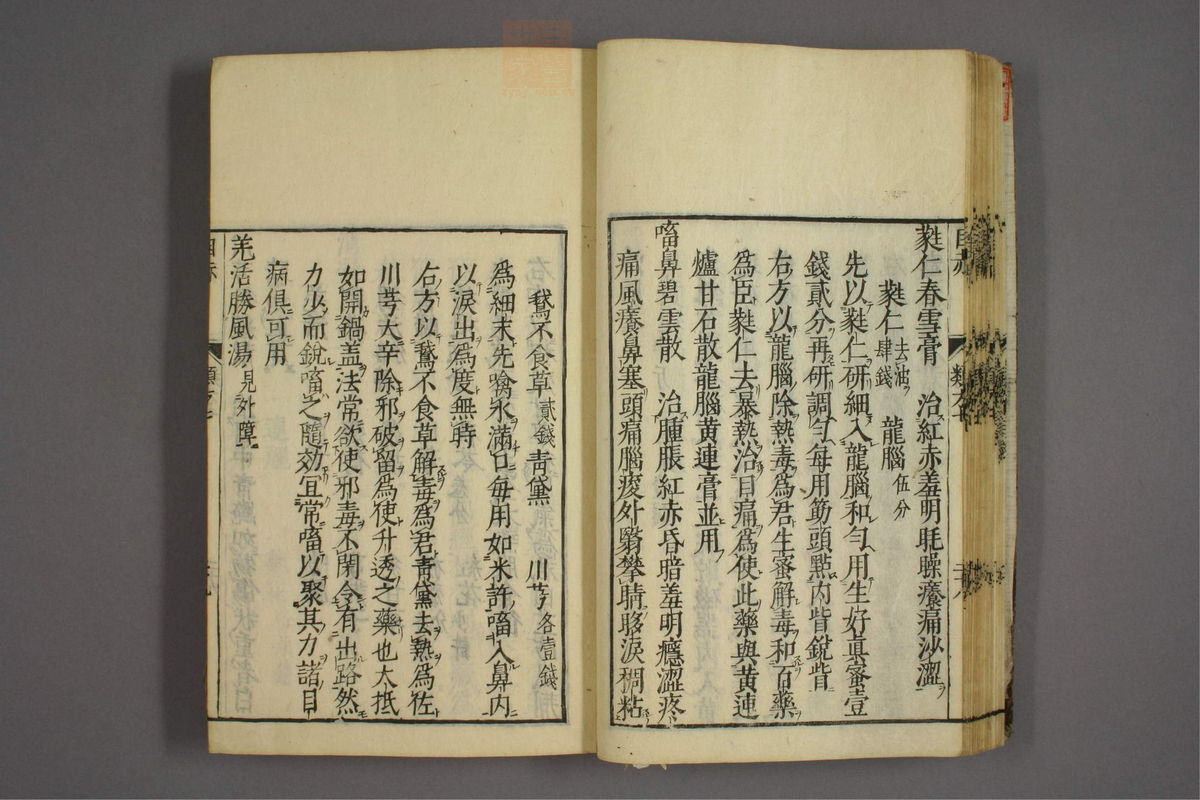 蕤仁春雪膏 治紅赤羞明眊矂癢痛沙澀
蕤仁去油肆錢 龍腦伍分
先以蕤仁研細入龍腦和勻用生好眞蜜壹
錢貳分再研調勻每用筯頭點內眥銳眥
右方以龍腦除熱毒爲君生蜜解毒和百藥
爲臣蕤仁去暴熱治目痛爲使此藥與黃連
爐甘石散龍腦黃連膏並用
㗜鼻碧雲散 治腫脹紅赤昏暗羞明癮澀疼
痛風癢鼻塞頭痛腦痠外翳攀睛眵淚稠粘
鵞不食草貳錢 靑黛 川芎各壹錢
爲細末先噙水滿口每用如米許㗜入鼻內
以淚出爲度無時
右方以鵞不食草解毒爲君靑黛去熱爲佐
川芎大辛除邪破留爲使升透之藥也大抵
如開鍋盖法常欲使邪毒不閉令有出路然
力少而銳㗜之隨効宜常㗜以聚其力諸目
病俱可用
羌活勝風湯見外障